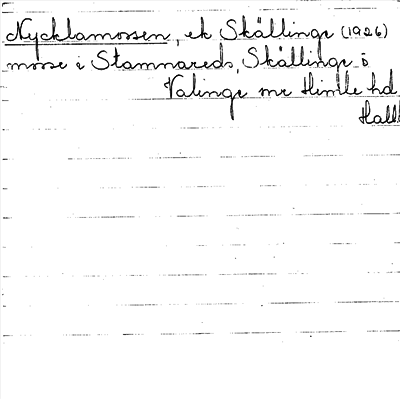 Nycklamossen, ek Skällinge (1926)
mosse i Stamnareds, Skällinge o
Valinge snr Himle hd
Hall